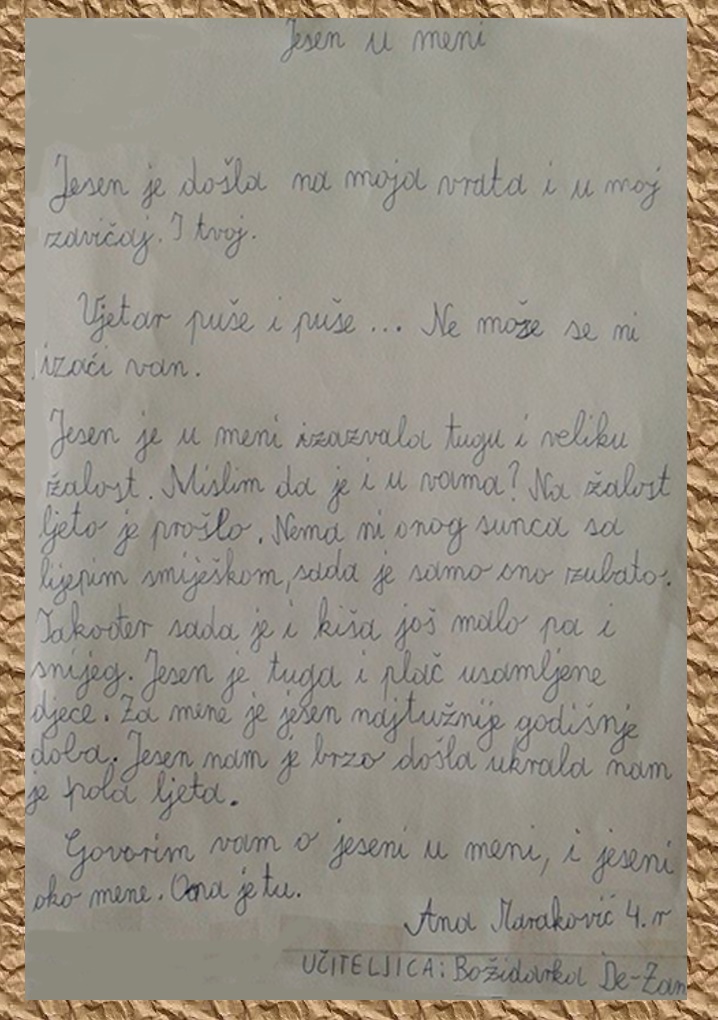 Jesen u meni
Jesen je došla na moja vrata i u moj
zavičaj. I tvoj.
Vjetar puše i puše... Ne može se ni
izaći van.
Jesen je u meni izazvala tugu i veliku
žalost. Mislim da je i u vama? Na žalost
ljeto je prošlo. Nema ni onog sunca sa
lijepim smiješkom, sada je samo ono zubato.
Također sada je i kiša još malo pa i
snijeg. Jesen je tuga i plač usamljene
djece. Za mene je jesen najtužnije godišnje
doba. Jesen nam je brzo došla ukrala nam
je pola ljeta.
Govorim vam o jeseni u meni, i jeseni
oko mene. Ona je tu.
Ana Maraković 4. r
UČITELJICA: Božidarka De-Zan